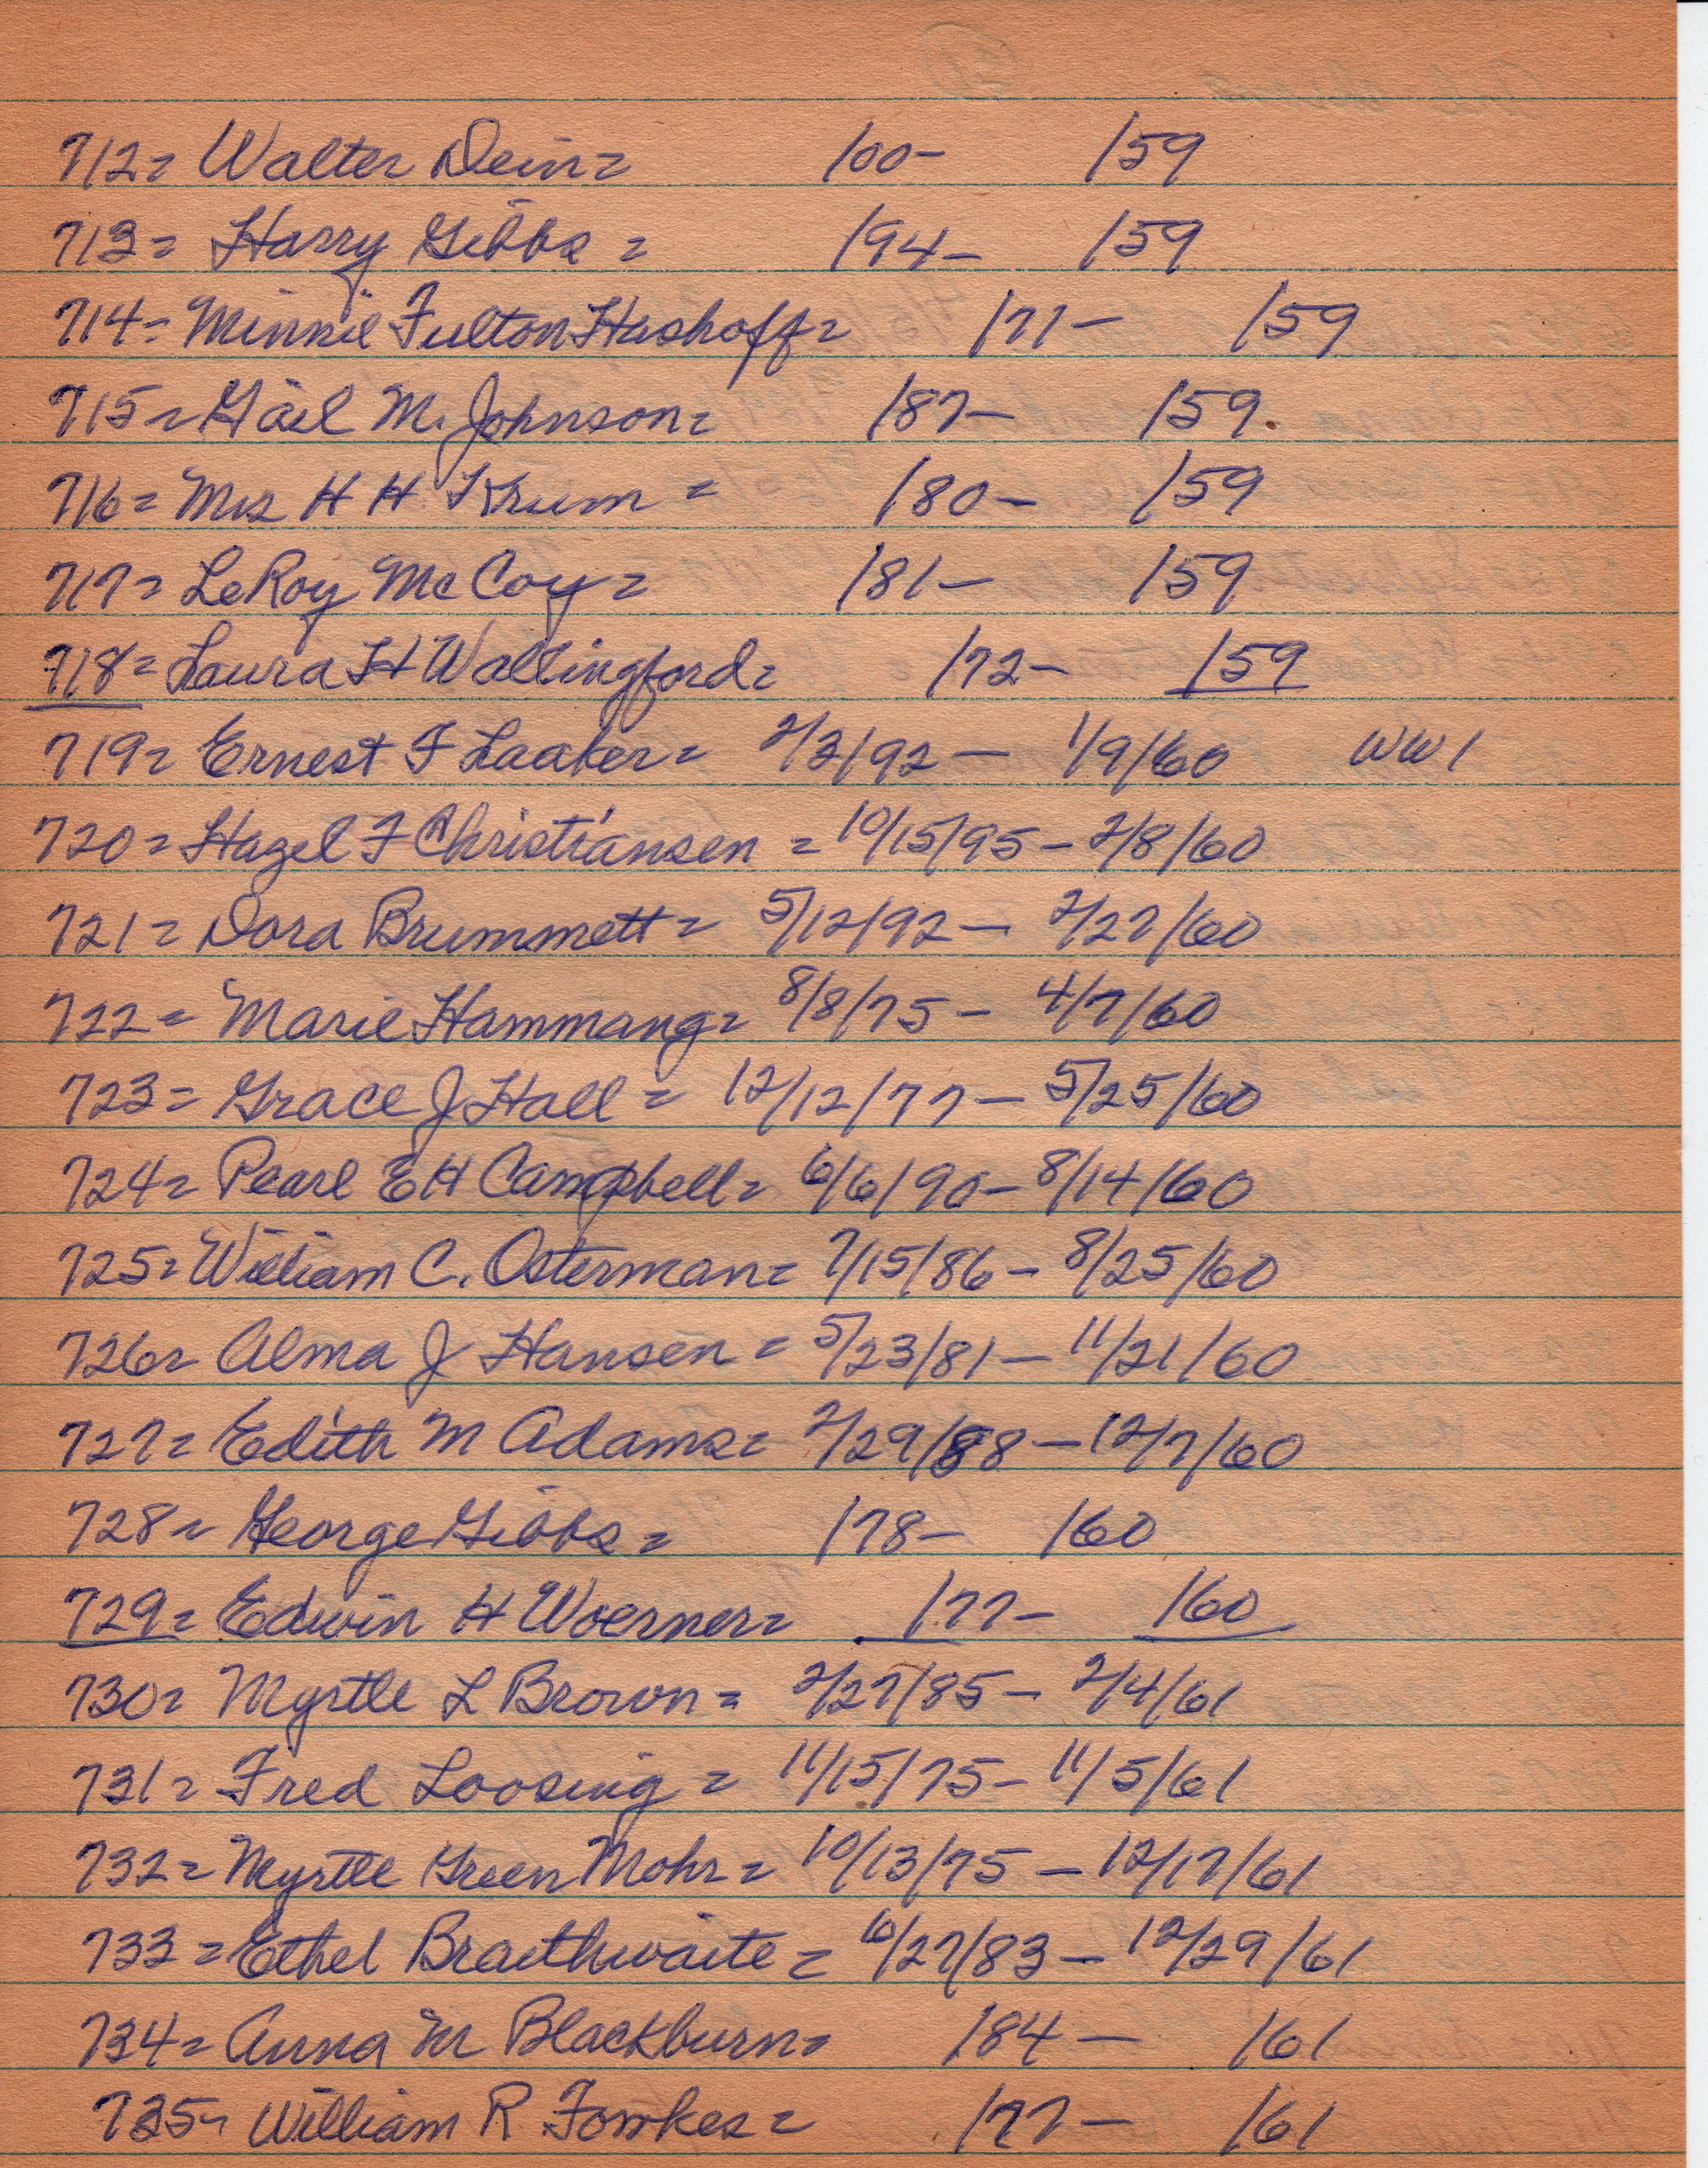 712= Walter Dein= /00- /59
713= Harry Gibbs = /94- /59
714= Minnie Fulton Hashoff= /71- /59
715= Gail M. Johnson= /87- /59
716= Mrs H H Krum = /80- /59
717= LeRoy McCoy= /81- /59
718= Laura H Wallingford= /72- /59
719= Ernest F Laaker= 2/3/92- 1/9/60 WW1
720= Hazel F Christiansen = 10/15/95- 2/8/60
721= Dora Brummett= 5/12/92- 2/27/60
722= Marie Hammang= 8/8/75- 4/7/60
723= Grace J Hall= 12/12/77- 5/25/60
724= Pearl E H Campbell= 6/6/90- 8/14/60
725= William C. Osterman= 7/15/86- 8/25/60
726= Alma J Hansen= 5/23/81- 11/21/60
727= Edith M Adams= 2/29/88- 12/7/60
728= George Gibbs= /78- /60
729= Edwin H Woerner= /77- /60
730= Myrtle L Brown= 2/27/85- 2/4/61
731= Fred Loosing= 11/15/75- 11/5/61
732= Myrtle Green Mohr= 10/13/75- 12/17/61
733= Ethel Braithwaite= 6/27/83- 12/29/61
734= Anna M Blackburn= /84- /61
735= William R Fowkes= /77- /61